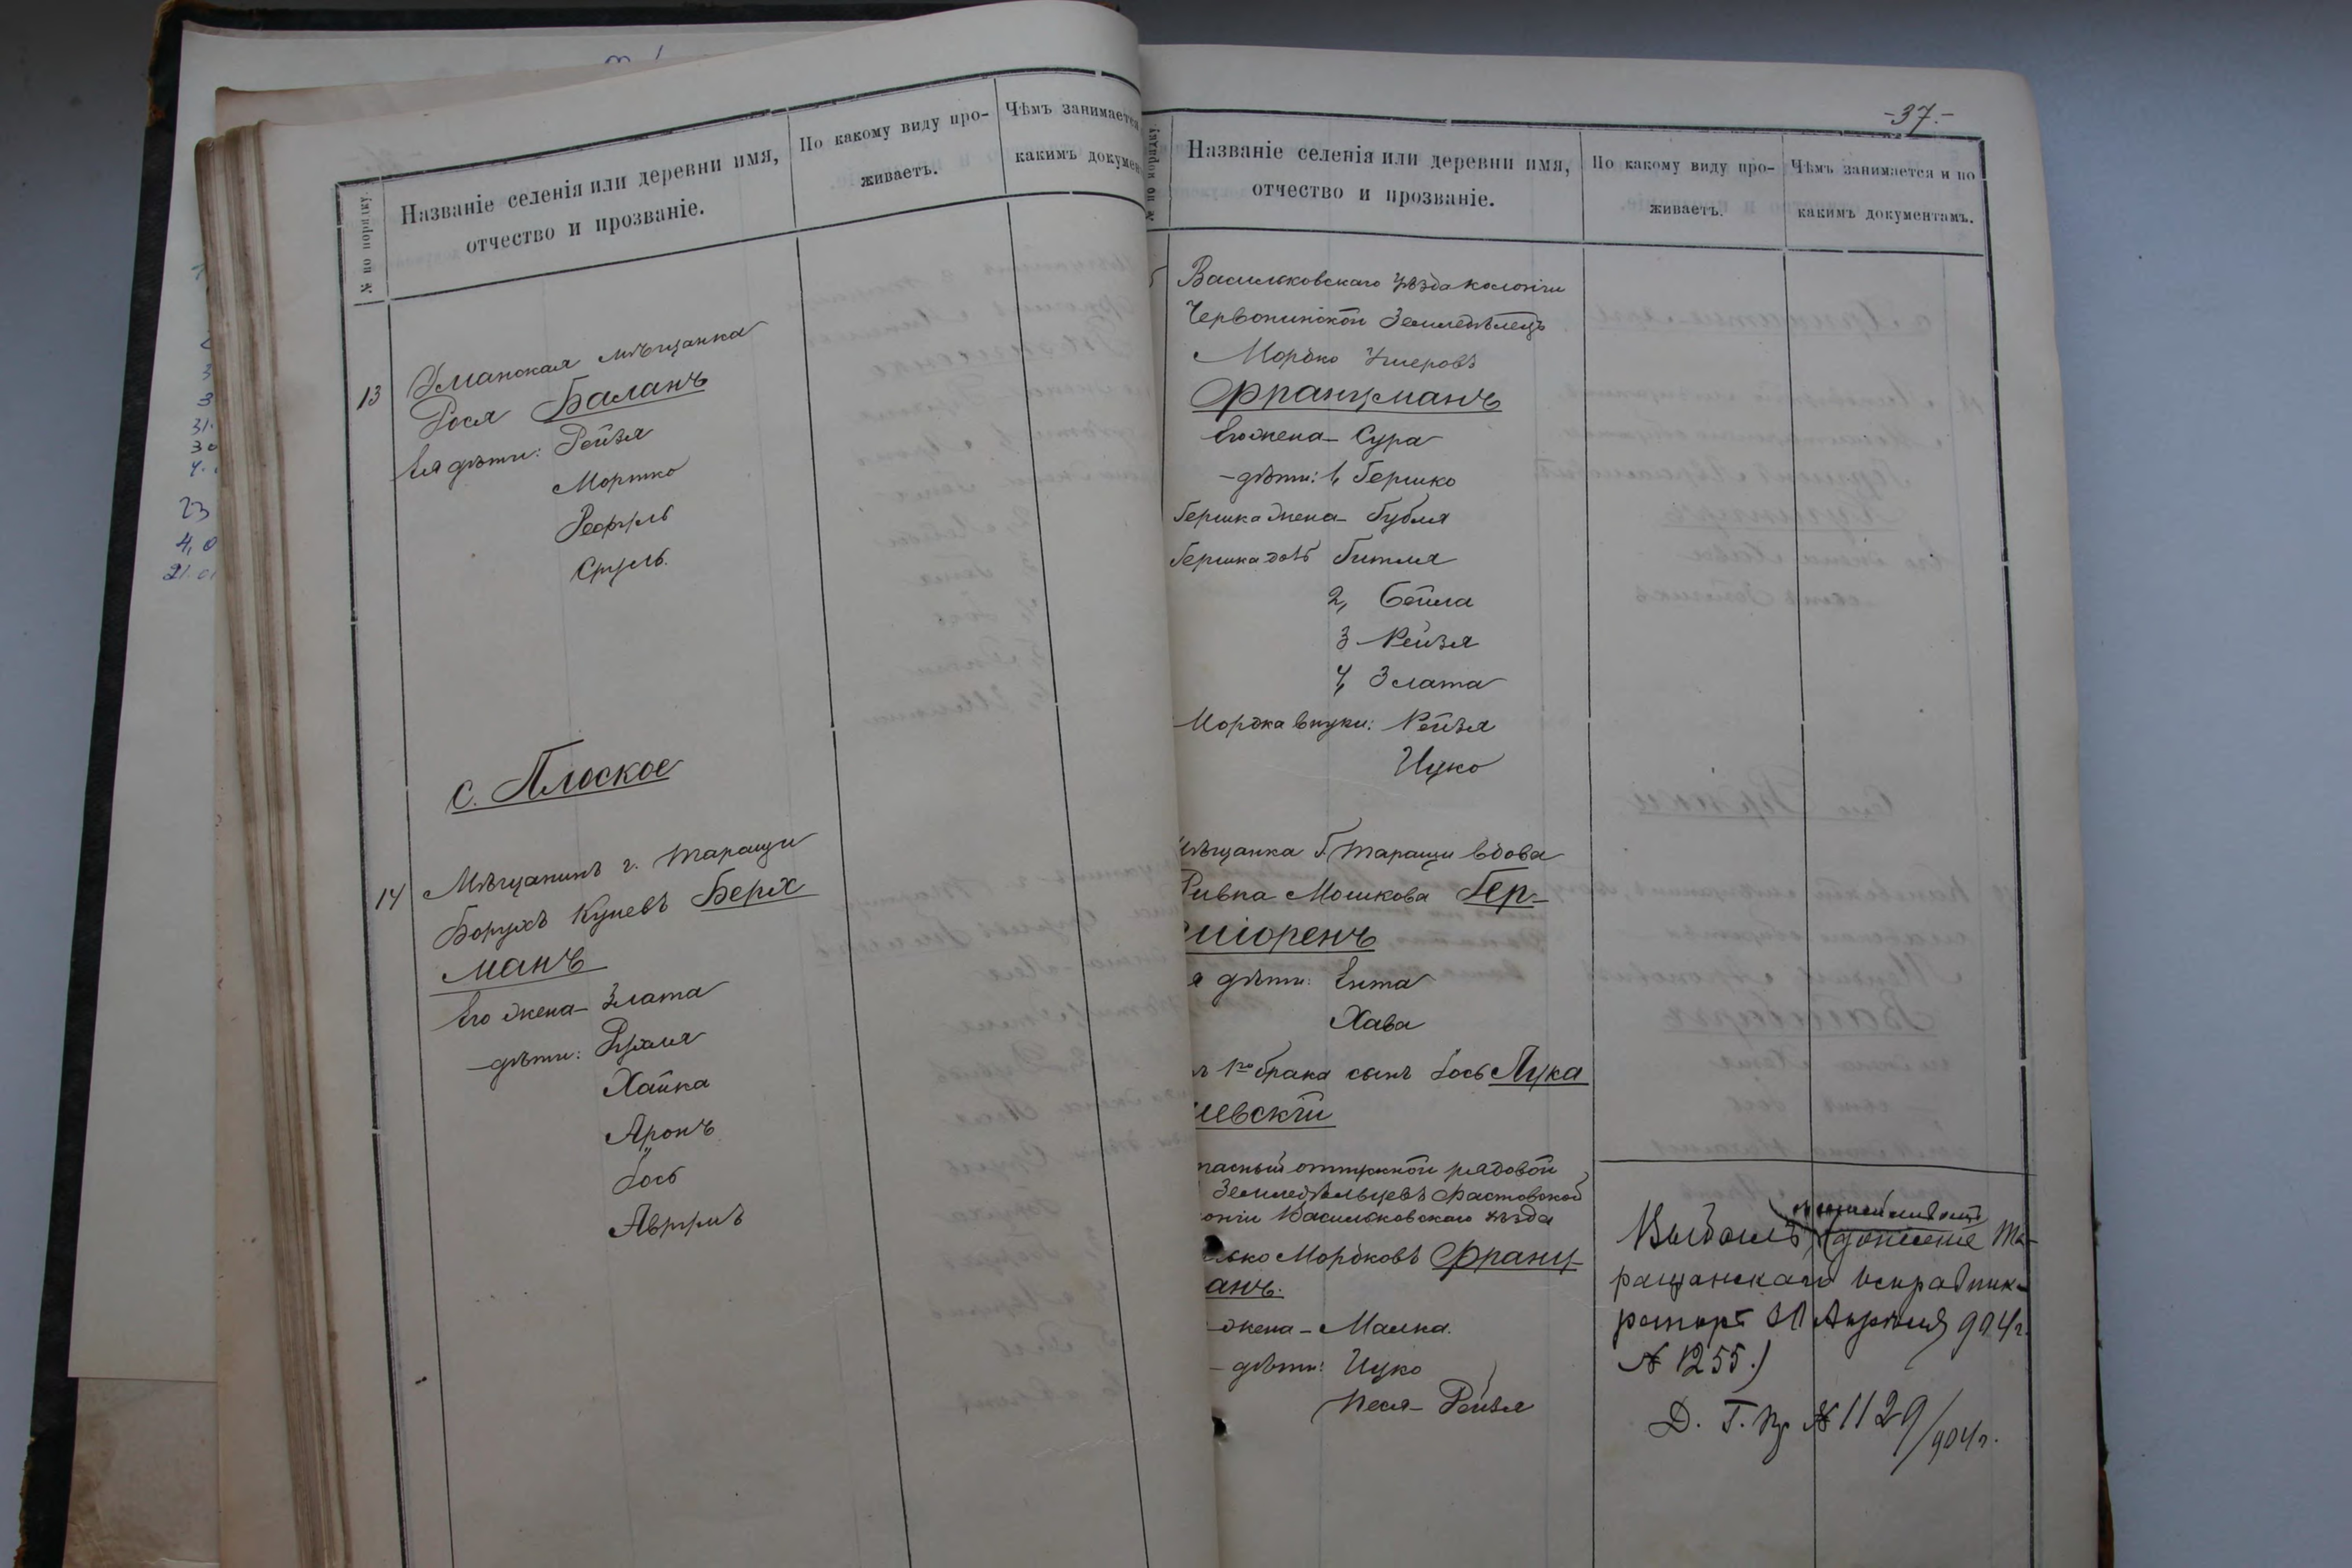 № по порядку
Названіе селенія или деревни имя,
отчество и прозваніе.
По какому виду про-
живаетъ.
Чѣмъ занимается
какимъ докумен
13
Уманская мѣщанка
Рося Баланъ
Ея дѣти: Рейзя
Мортко
Сруль.
с. Плоское
14
Мѣщанинъ г. Таращи
Борухъ Куневъ Берх
манъ
Его жена - Злата
- дѣти: Рухля
Хайка
Аронъ
Іось
Аврумъ
- 37. -
№ по порядку
Названіе селенія или деревни имя,
отчество и прозваніе.
По какому виду про-
живаетъ.
Чѣмъ занимается и по
какимъ документамъ.
Васильковскаго уѣзда колоніи
Червонинской Земледѣлецъ
Мордко
Французманъ
Его жена - Сура
- дѣти: 1, Гершко
Гершка жена - Бубля
Гершка Гитля
2, Бейла
3 Рейзя
4, Злата
Мордка внуки: Рейзя
Ицко
мѣщанка г. Таращи вдова
Ривка Мошкова Гер-
шгоренъ
дѣти: Ента
Хава
1го брака сынъ Іось Лука
шевскій
пасный отпускной рядовой
Земледѣльцевъ Фастовской
оніи Васильковскаго уѣзда
Мордковъ Франц-
анъ.
жена - Малка.
- дѣти: Ицко
Песя - Рейзя
Выбылъ
ращанскаго исправника
рапортъ Апрѣля 904 г.
№ 1255.)
Д. Г. Пр. № 1129/904 г.